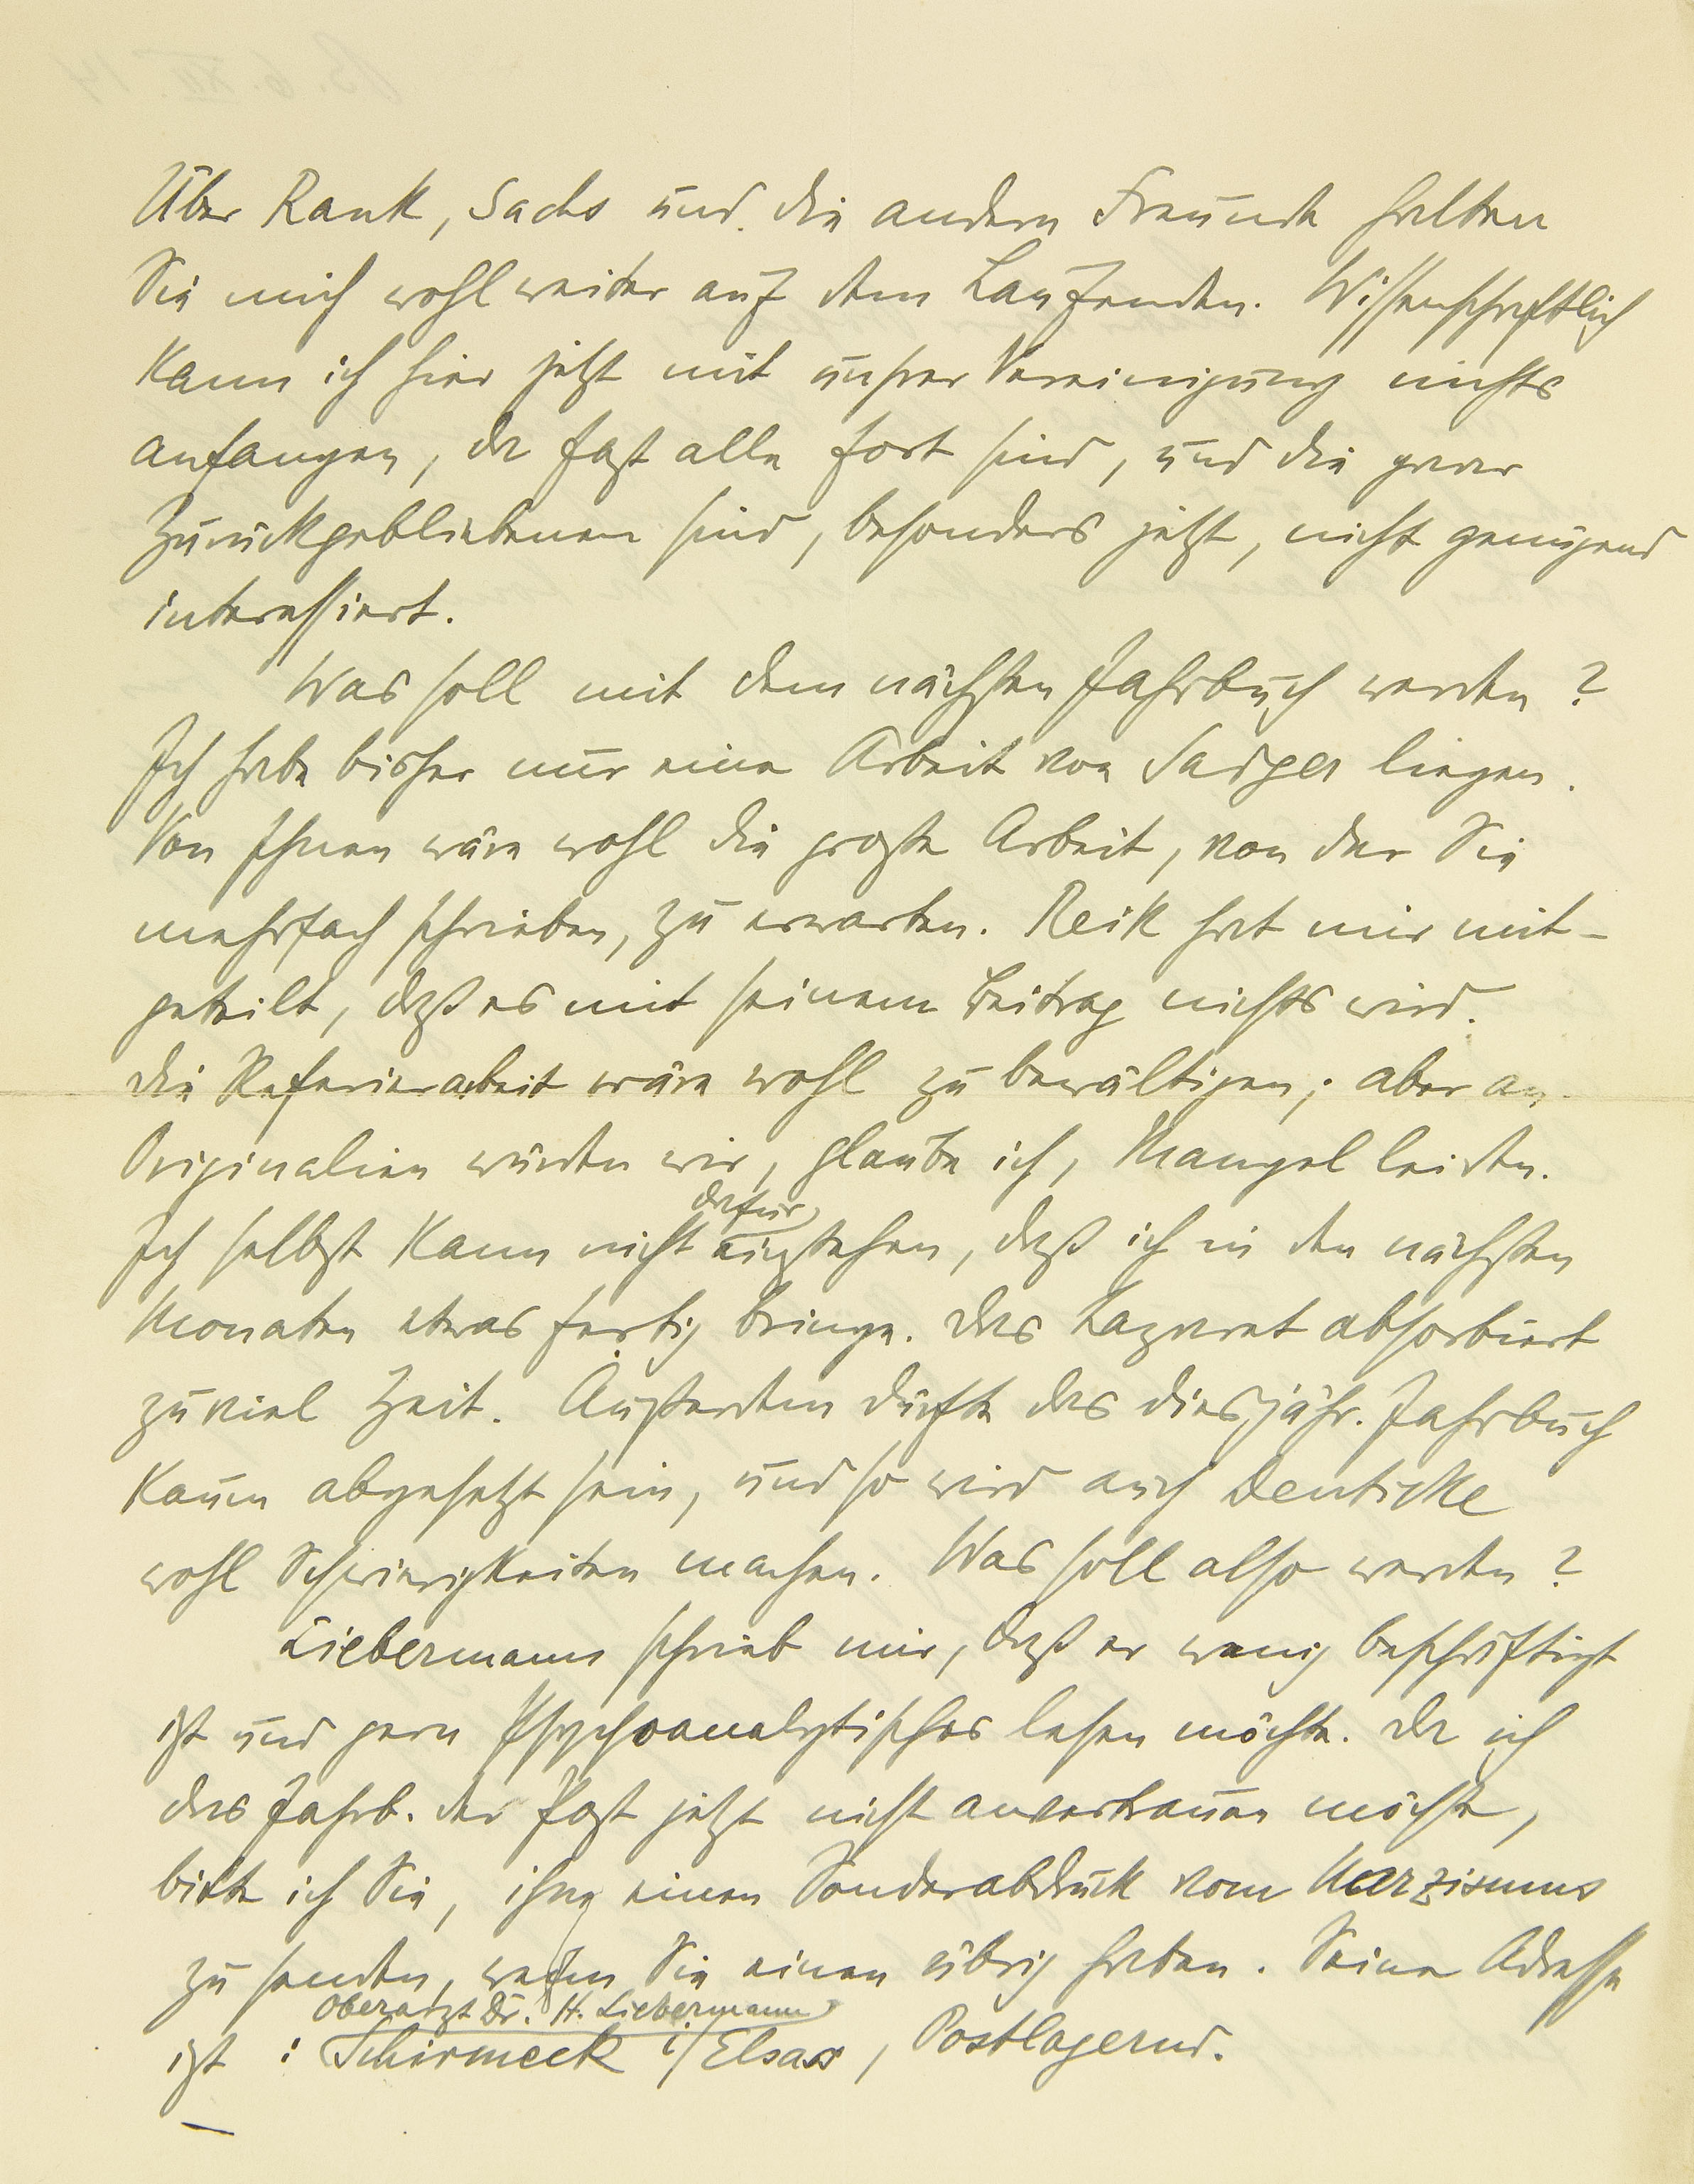 Über Rank, Sachs und die andern Freunde halten
Sie mich wohl weiter auf dem Laufenden. Wissenschaftlich
kann ich hier jetzt mit unsrer Vereinigung nichts
anfangen, da fast alle fort sind, und die paar
Zurückgebliebenen sind, besonders jetzt, nicht genügend
interessiert.
Was soll mit dem nächsten Jahrbuch werden?
Ich habe bisher nur eine Arbeit von Sadger liegen.
Von Ihnen wäre wohl die große Arbeit, von der Sie
mehrfach schrieben, zu erwarten. Reik hat mir mit-
geteilt, daß es mit seinem Beitrag nichts wird.
Die Referierarbeit wäre wohl zu bewältigen; aber an
Originalien würden wir, glaube ich, Mangel leiden.
dafür
Ich selbst kann nicht einstehen, daß ich in den nächsten
Monaten etwas fertig bringe. Das Lazaret absorbiert
zuviel Zeit. Außerdem dürfte das diesjähr. Jahrbuch
kaum abgesetzt sein, und so wird auch Deuticke
wohl Schwierigkeiten machen. Was soll also werden?
Liebermann schrieb mir, daß er wenig beschäftigt
ist und gern Psychoanalytisches lesen möchte. Da ich
das Jahrb. der Post jetzt nicht anvertrauen möchte,
bitte ich Sie, ihm einen Sonderabdruck vom Narzismus
zu senden, wenn Sie einen übrig haben. Seine Adresse
Oberarzt Dr. H. Liebermann
ist : Schirmeck i/Elsass, Postlagernd.